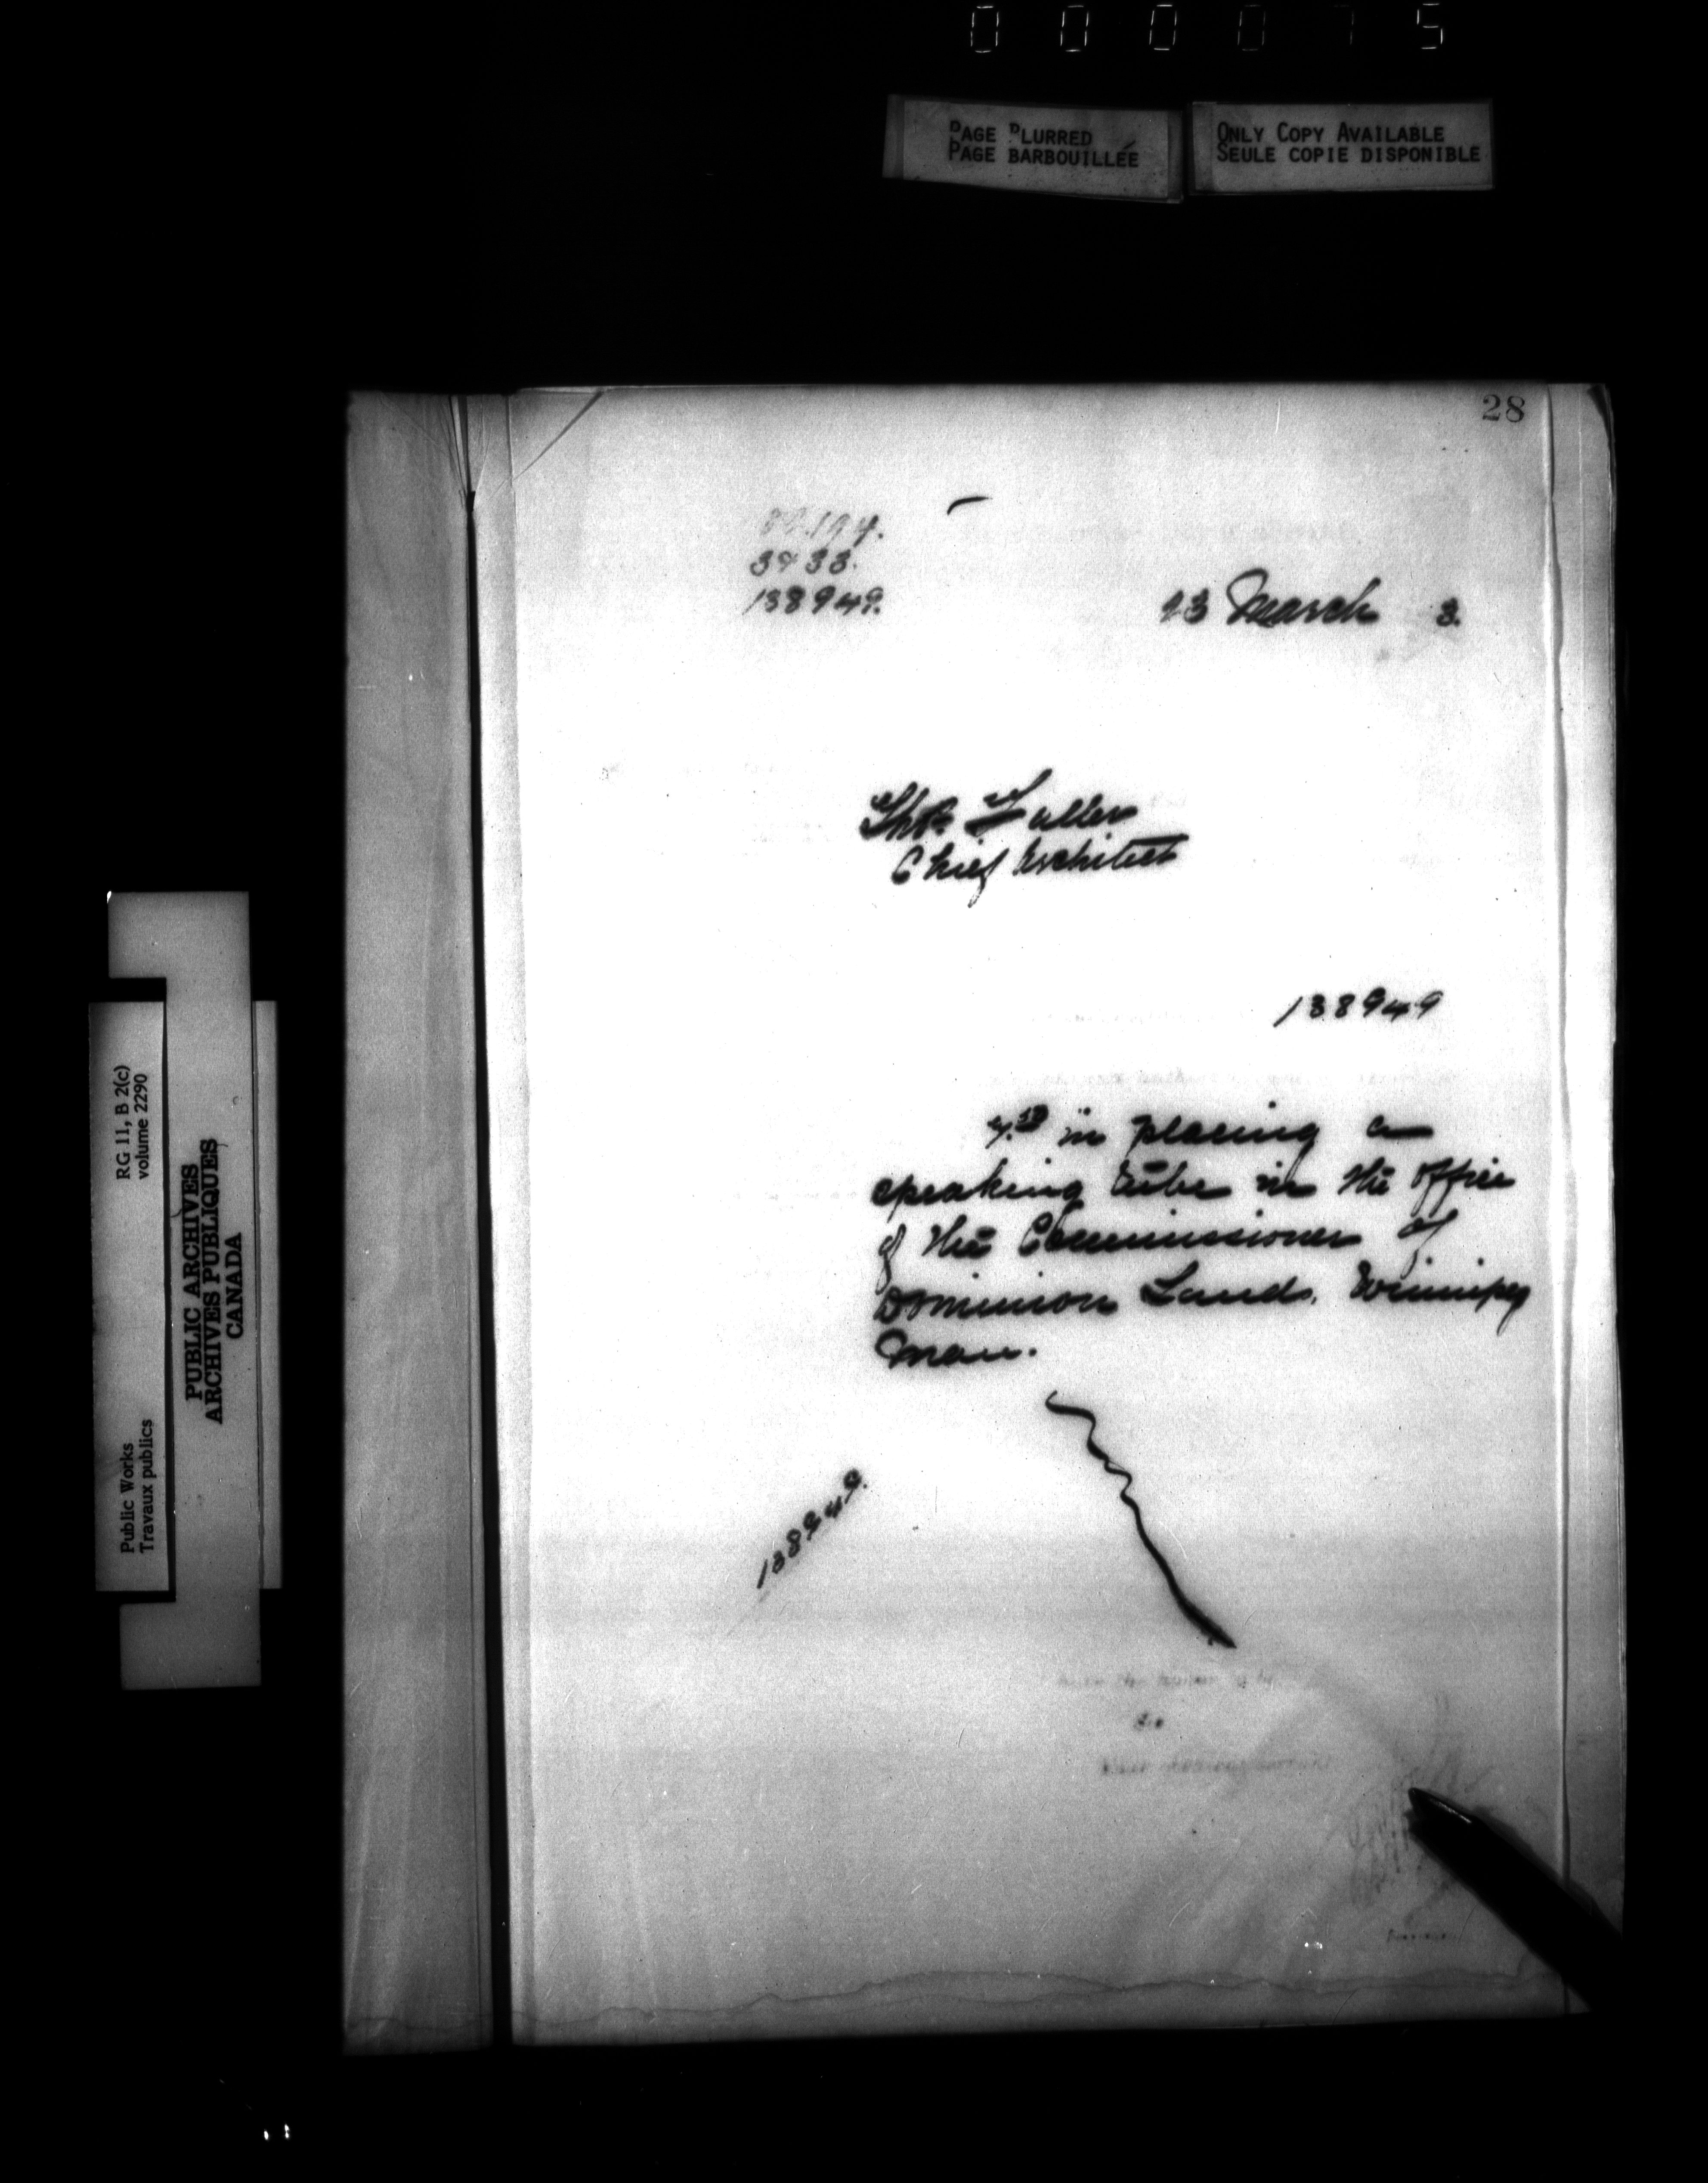 0 0 0 0 1 5
PAGE BLURRED
PAGE BARBOUILLÉE
ONLY COPY AVAILABLE
SEULE COPIE DISPONIBLE
28
3933.
138949.
23 March 3.
Thos Fuller
Chief Architect
138949
in placing a
speaking tube in the office
of the Commissioner of
Dominion Lands, Winnipeg
Man.
138949.
RG 11, B 2(c)
volume 2290
PUBLIC ARCHIVES
ARCHIVES PUBLIQUES
CANADA
Public Works
Travaux publics